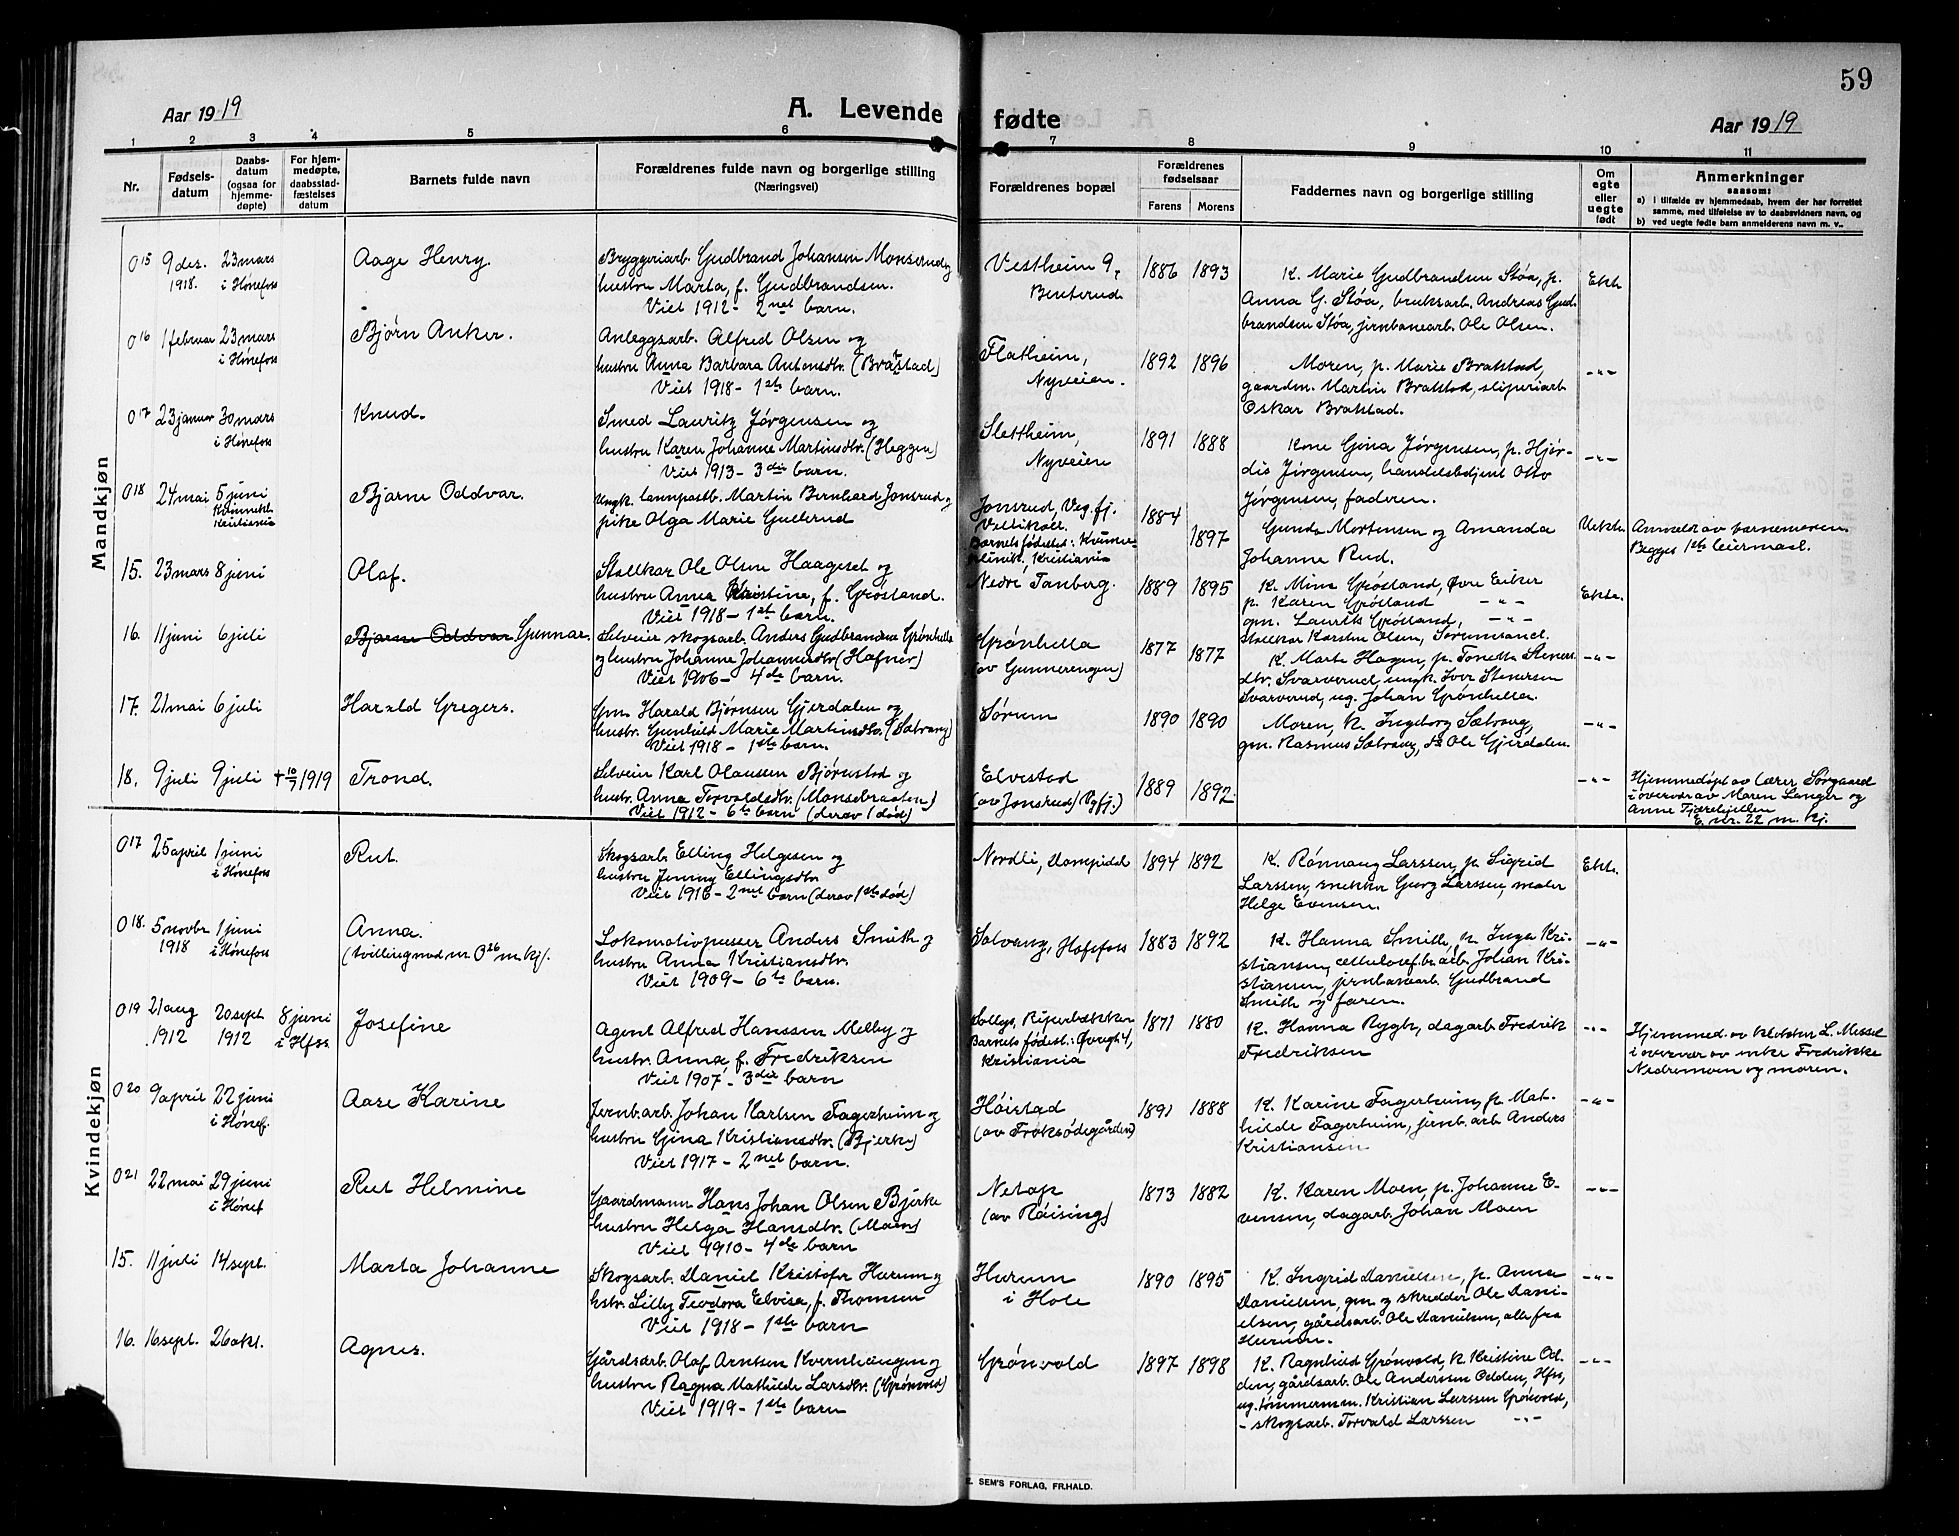 59
Aar 1919
A. Levende fødte
Aar 1919
1 2 3 4 5 6 7 8 9 10 11
Nr.
Fødsels-
datum
Daabs-
datum
(ogsaa for
hjemme-
døpte)
For hjem-
medøpte,
daabsstad-
fæstelses
datum
Barnets fulde navn
Forældrenes fulde navn og borgerlige stilling
(Næringsvei)
Forældrenes bopæl
Forældrenes
fødselsaar
Farens Morens
Faddernes navn og borgerlige stilling
Om
egte
eller
uegte
født
Anmerkninger
saasom:
a) i tilfælde av hjemmedaab, hvem der har forrettet
samme, med tilføielse av to daabsvidners navn, og
b) ved uegte fødte barn anmelderens navn m. v..
Mandkjøn
015 9 des. 1918. 23 mars i Hönefos
Aage Henry.
Bryggeriarb. Gudbrand Johansen Monserud og
hustru Marta, f. Gudbrandsen.
Viet 1912 - 2net barn.
Vestheim 9,
Benterud
1886 1893
K. Marie Gudbrandsen Støa, p.
Anna G. Støa, bruksarb. Andreas Gud-
brandsen Støa, jernbanearb. Ole Olsen.
Ekte
016 1 februar 23 mars i Hönefos
Bjørn Anker.
Anleggsarb. Alfred Olsen og
hustru Anna Barbara Antonsdtr. (Bråtstad)
Viet 1918 - 1ste barn.
Flatheim,
Nyveien.
1892 1896
Moren, p. Marie Bratstad,
gaardm. Martin Bratstad, sliperiarb.
Oskar Bratstad.
-"-
017 23 januar 30 mars i Hönefos
Knud.
Smed Lauritz Jørgensen og
hustru Karen Johanne Martinsdtr. (Heggen)
Viet 1913 - 3die barn.
Slettheim,
Nyveien
1891 1888
Kone Gina Jørgensen, p. Hjør-
dis Jørgensen, handelsbetjent Otto
Jørgensen, faderen.
-"-
018 24 mai 5 juni Kristiania
Bjarne Oddvar.
Ungk. Martin Bernhard Jonsrud og
pike Olga Marie Gulterud
Jonsrud, Veg.fj.
Barnets fødested: Kvinne-
klinik, Kristiania
1884 1897
Gunda Mortensen og Amanda
Johanne Rud.
Uekte.
Anmeldt av barnemoren.
Begges 1ste leiermaal.
15. 23 mars 8 juni
Olaf.
Stallkar Ole Olsen Haageset og
hustru Anna Kristine, f. Grøstand.
Viet 1918 - 1st barn.
Nedre Tanberg.
1889 1895
K. Mina Grøstand, Øvre Eiker
p. Karen Grøstand -"-
gm. Laurits Grøstand, -"-
stallkar Karsten Olsen, Sørumsand.
Ekte.
16. 11 juni 6 juli
Bjarne Oddvar. Gunnar.
Selveier skogsarb. Anders Gudbrandsen Grønhella
og hustru Johanne Johannesdtr. (Hafner)
Viet 1906 - 4de barn.
Grönhella
(av Gunnerengen)
1877 1877
K. Marte Hagen, p. Tonetta Steners-
dtr. Svarverud, ungk. Iver Stenersen
Svarverud, ug. Johan Grönhella.
-"-
17. 21 mai 6 juli
Harald Gregers.
Gm. Harald Bjørnsen Gjerdalen og
hustr. Gunhild Marie Martinsdtr. (Solvang)
Viet 1918 - 1ste barn.
Sørum
1890 1890
Moren, K. Ingeborg Solvang,
gm. Rasmus Solvang, do Ole Gjerdalen.
-"-
18. 9 juli 9 juli † 10/7 1919
Trond.
Selveier Karl Olaussen Bjørnstad og
hustr. Anna Torvaldsdtr. (Monsebraaten)
Viet 1912 - 6te barn (derav 1 død)
Elvestad
(av Jonsrud) Vgfj.)
1889 1892.
-"-
Hjemmedøpt av lærer Sørgaard
i overvær av Maren Langer og
Anne
E. nr. 22 m. kj.
Kvindekjøn
017 25 april 1 juni i Hönefos
Rut.
Skogsarb. Elling Helgesen og
hustru Jenny Ellingsdtr.
Viet 1916 - 2net barn (derav 1ste død)
Nordli,
1894 1892
K. Rønnaug Larssen, p. Sigrid
Larssen, snekker Georg Larssen, maler
Helge Evensen.
Ekte.
018. 5 novbr 1918 1 juni i Hönefos
Anna.
(tvilling med nr 026 m. kj).
Lokomotivpusser Anders Smith og
hustru Anna Kristiansdtr.
Viet 1909 - 6te barn.
Solvang, Hofsfoss
1883 1892
K. Hanna Smith, K. Inga Kri-
stiansen, cellulosef.br.arb. Johan Kri-
stiansen, jernbanearb. Gudbrand
Smith og faren.
-"-
019 21 aug 1912 20 sept 1912 8 juni i Hfss.
Josefine
Agent Alfred Hanssen Melby og
hustru Anna, f. Fredriksen
Viet 1907 - 3die barn
Solbg, Riperbakken
Barnets fødest.: Øvregt 4,
Kristiania
1871 1880
K. Hanna Rygh, dagarb. Fredrik
Fredriksen
-"-
Hjemmed. av klokker L. Messel
i overvær av enke Fredrikke
Nedremoen og moren.
020 9 april 22 juni i Hönef.
Aase Karine
Jernb.arb. Johan Karlsen Fagerheim og
hustru Gina Kristiansdtr. (Bjerke)
Viet 1917 - 2net barn.
Höistad
(av Tröksödegården)
1891 1888
K. Karine Fagerheim, p. Mat-
hilde Fagerheim, jernb.arb. Anders
Kristiansen
-"-
021 22 mai 29 juni i Hönef
Rut Helmine
Gaardmann Hans Johan Olsen Bjørke
hustru Helga Hansdtr. (Moen)
Viet 1910 - 4de barn
Netop
(av Röising)
1873 1882
K. Karen Moen, p. Johanne E-
vensen, dagarb. Johan Moen
-"-
15. 11 juli 14 sept.
Marta Johanne
Skogsarb. Daniel Kristofer Hurum og
hstr. Lilly Teodora Elvisa, f. Thomsen
Viet 1918 - 1ste barn
Hurum
i Hole
1890 1895
K. Ingrid Danielsen, p. Anna
Danielsen, gm. og skredder Ole Dani-
elsen, gårdsarb. Ole Danielsen, alle fra
Hurum.
-"-
16. 16 sept. 26 okt.
Agnes.
Gårdsarb. Olaf Arntsen Kvernhaugen og
hustru Ragna Mathilde Larsdtr. (Grönvold)
Viet 1919 - 1ste barn
Grönvold
1897 1898
K. Ragnhild Grönvold, K. Kristine Od-
den, gårdsarb. Ole Anderssen Odden, Hfss,
ug. tömmermm. Kristian Larssen Grönvold,
- skogsarb. Torvald Larssen -"-
-"-
E. SEM'S FORLAG, FR.HALD.